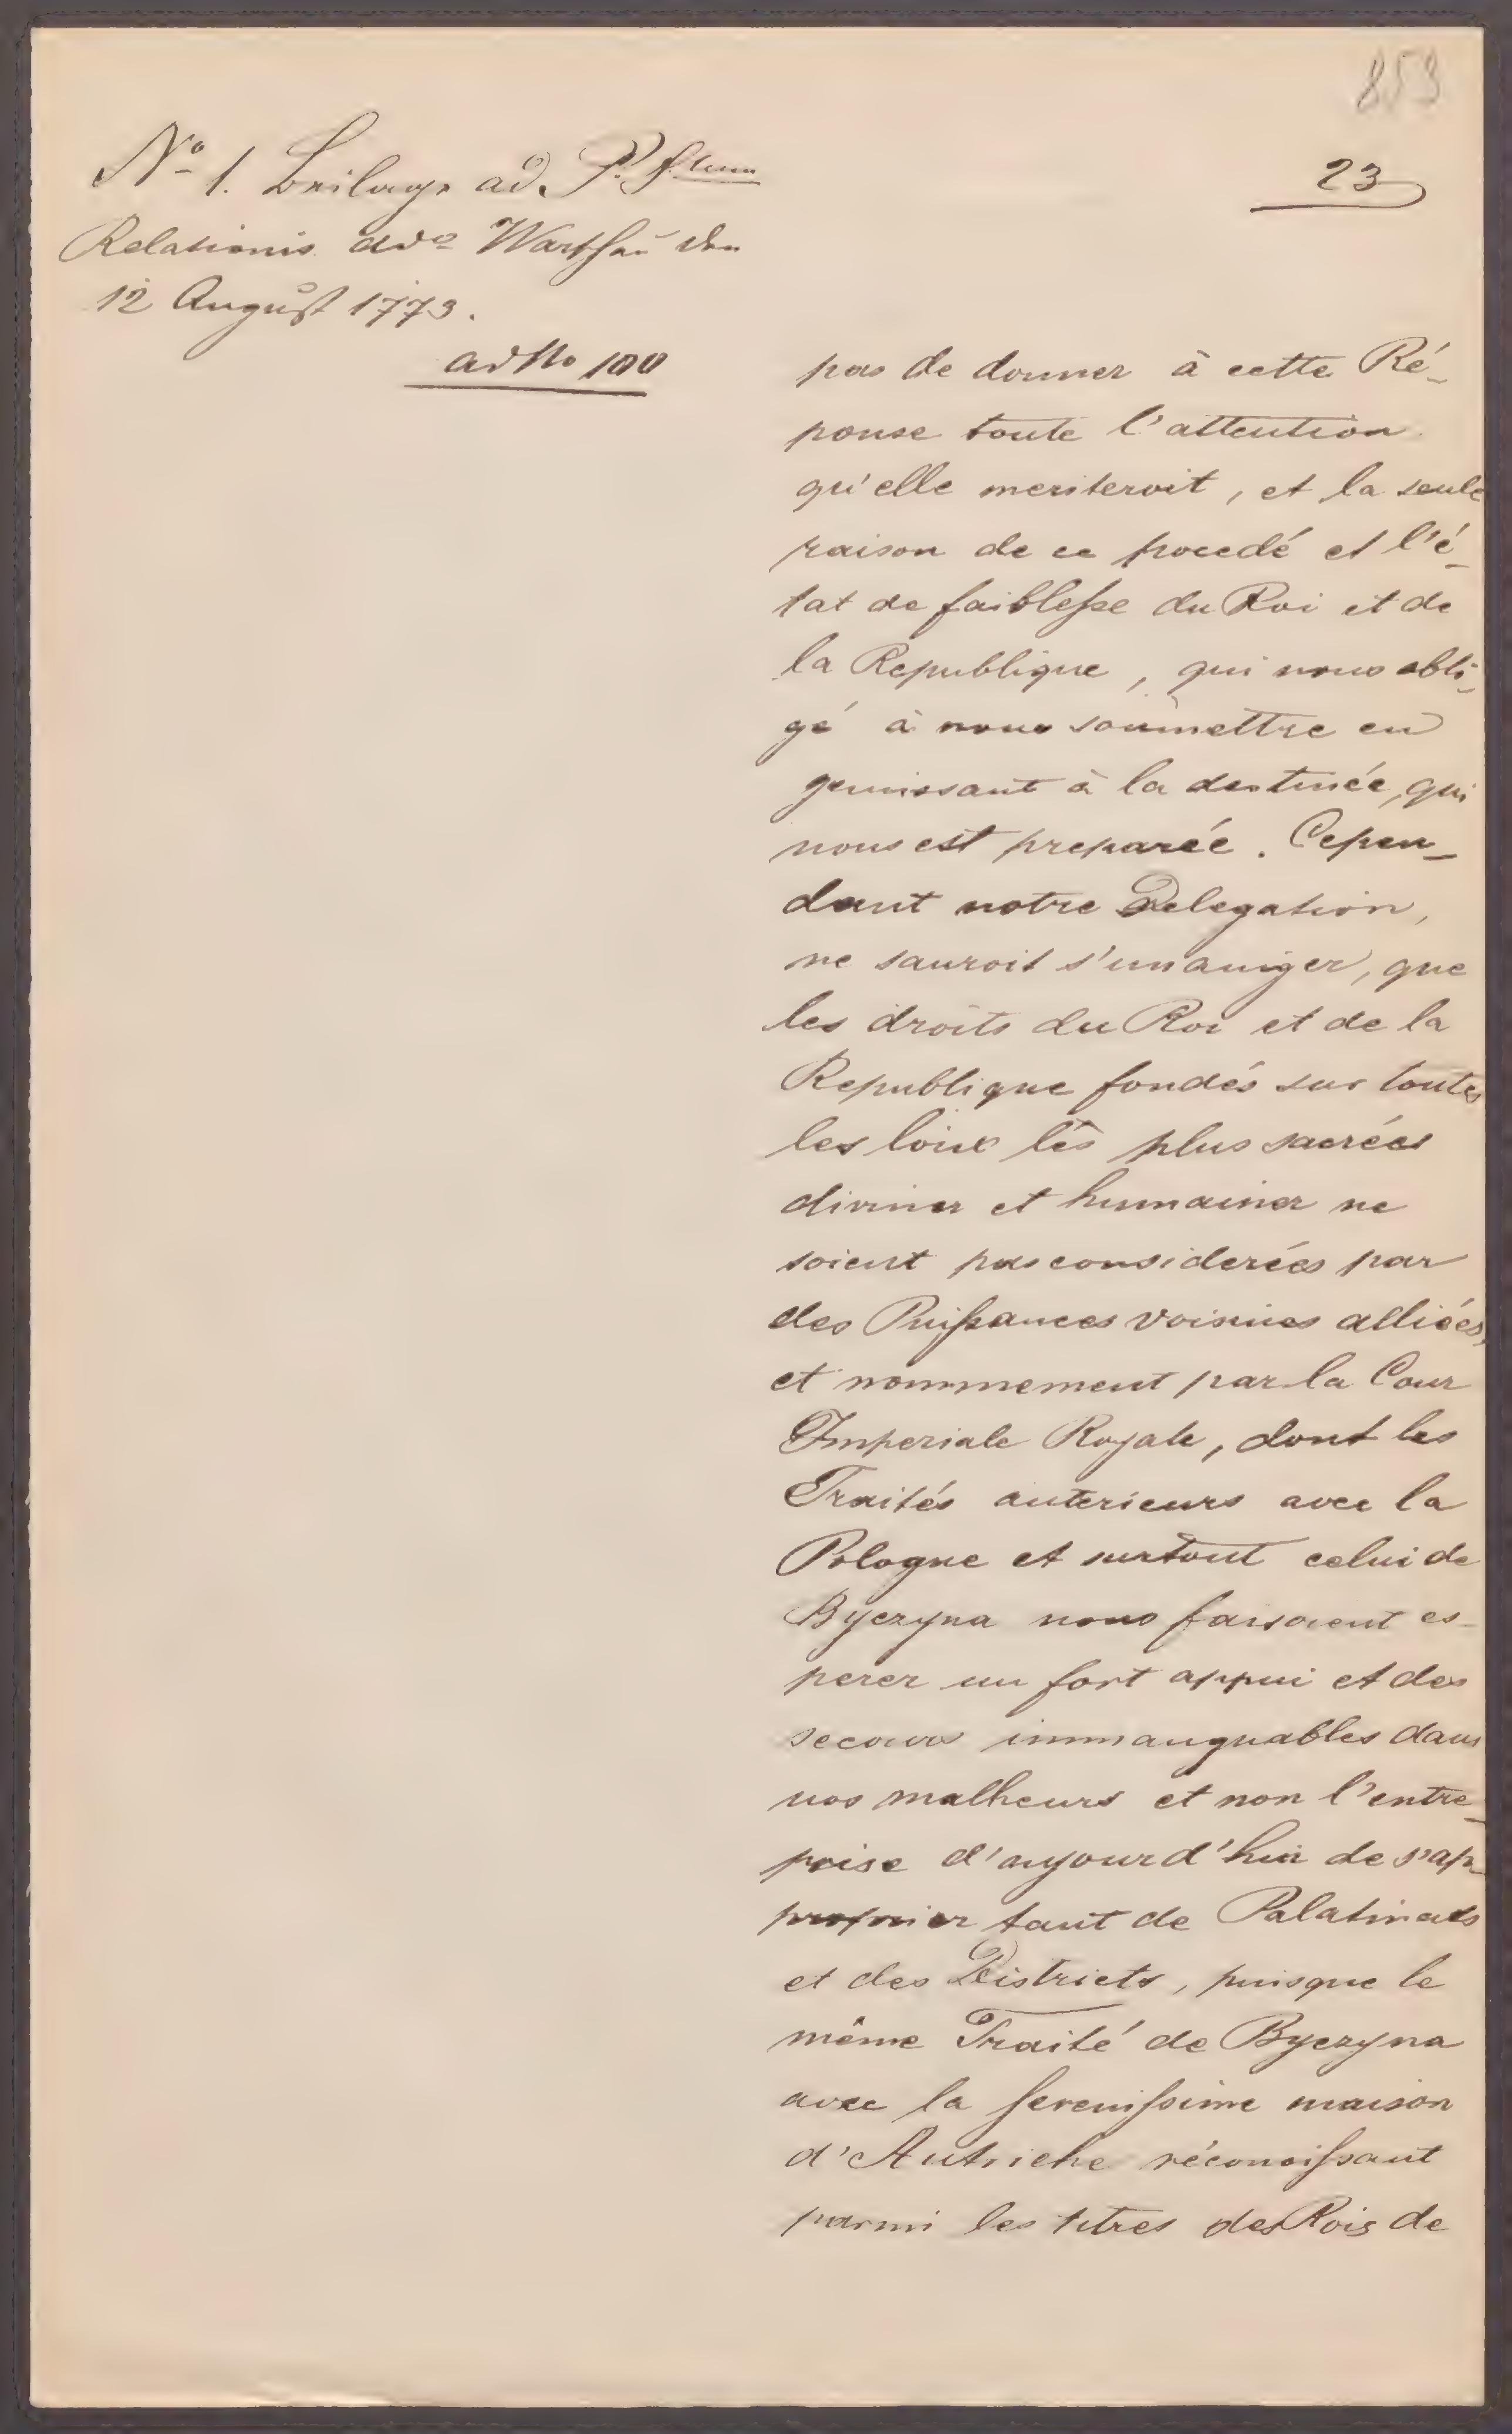 853
23
No 1. Beilage ad P. Stum
Relationis ddo Warschau den
12 August 1773.
ad No 100
pas de donner à cette Ré-
ponse toute l'attention
qu'elle meriteroit, et la seule
raison de ce procedé et l'é-
tat de faiblesse du Roi et de
la Republique, qui nous obli-
gé à nous soumettre en
gemissant à la destinée, qui
nous est preparée. Cepen-
dant notre Delegation,
ne sauroit s'imaniger, que
les droits du Roi et de la
Republique fondés sur toutes
les loix les plus sacrées
divines et humaines ne
soient pas considerées par
des Puissances voisines alliées,
et nommement par la Cour
Imperiale Royale, dont les
Traités anterieurs avec la
Pologne et surtout celui de
Byczyna nous faisoient es-
perer un fort appui et des
secours immanquables dans
nos malheurs et non l'entre-
prise d'aujourd'hui de s'ap-
proprier tant de Palatinats
et des Districts, puisque le
même Traité de Byczyna
avec la serenissime maison
d'Autriche réconoissant
parmi les titres des Rois de